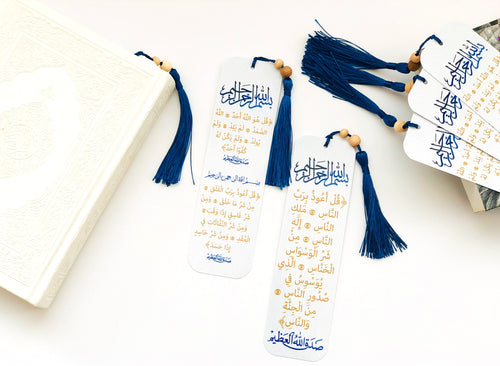 بسم الله الرحمن الرحيم
﴿قُلْ هُوَ اللَّهُ أَحَدٌ ۞ اللَّهُ
الصَّمَدُ ۞ لَمْ يَلِدْ ۞ وَلَمْ
يُولَدْ ۞ وَلَمْ يَكُن لَّهُ
كُفُوًا أَحَدٌ﴾
صدق الله العظيم
بسم الله الرحمن الرحيم
﴿قُلْ أَعُوذُ بِرَبِّ الْفَلَقِ ۞
مِن شَرِّ مَا خَلَقَ ۞ وَمِن
شَرِّ غَاسِقٍ إِذَا وَقَبَ ۞
وَمِن شَرِّ النَّفَّاثَاتِ فِي
الْعُقَدِ ۞ وَمِن شَرِّ حَاسِدٍ
إِذَا حَسَدَ﴾
صدق الله العظيم
بسم الله الرحمن الرحيم
﴿قُلْ أَعُوذُ بِرَبِّ
النَّاسِ ۞ مَلِكِ
النَّاسِ ۞ إِلَٰهِ
النَّاسِ ۞ مِن
شَرِّ الْوَسْوَاسِ
الْخَنَّاسِ ۞ الَّذِي
يُوَسْوِسُ فِي
صُدُورِ النَّاسِ ۞
مِنَ الْجِنَّةِ
وَالنَّاسِ﴾
صدق الله العظيم
بسم الله الرحمن الرحيم
بسم الله الرحمن الرحيم
بسم الله الرحمن الرحيم